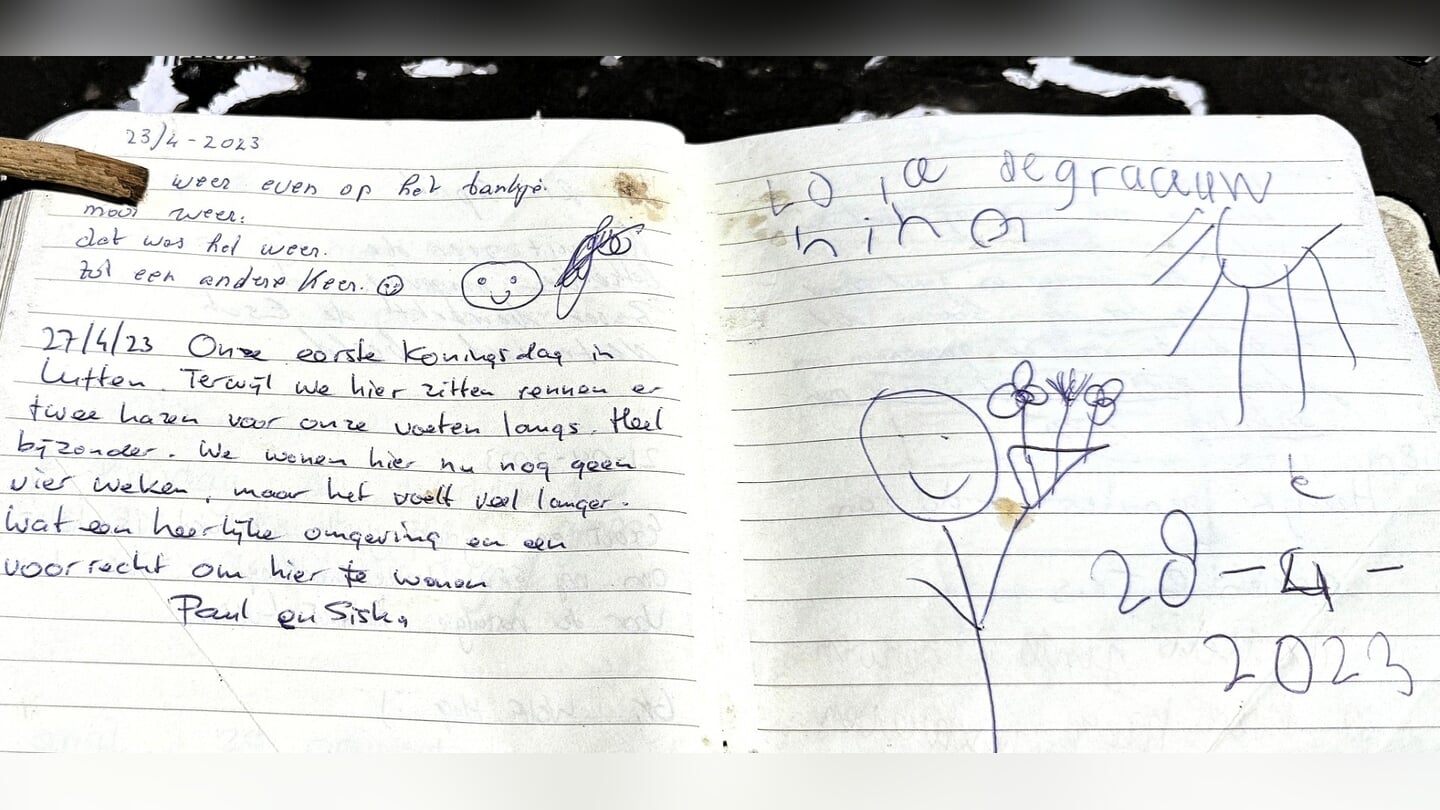 23/4-2023
weer even op het bankje.
mooi weer.
dat was het weer.
tot een andere keer.
27/4/23 Onze eerste Koningsdag in
Lutten. Terwijl we hier zitten rennen er
twee hazen voor onze voeten langs. Heel
bijzonder. We wonen hier nu nog geen
vier weken, maar het voelt veel langer.
Wat een heerlijke omgeving en een
voorrecht om hier te wonen
Paul en Siska
degraauw
nina
28-4-
2023